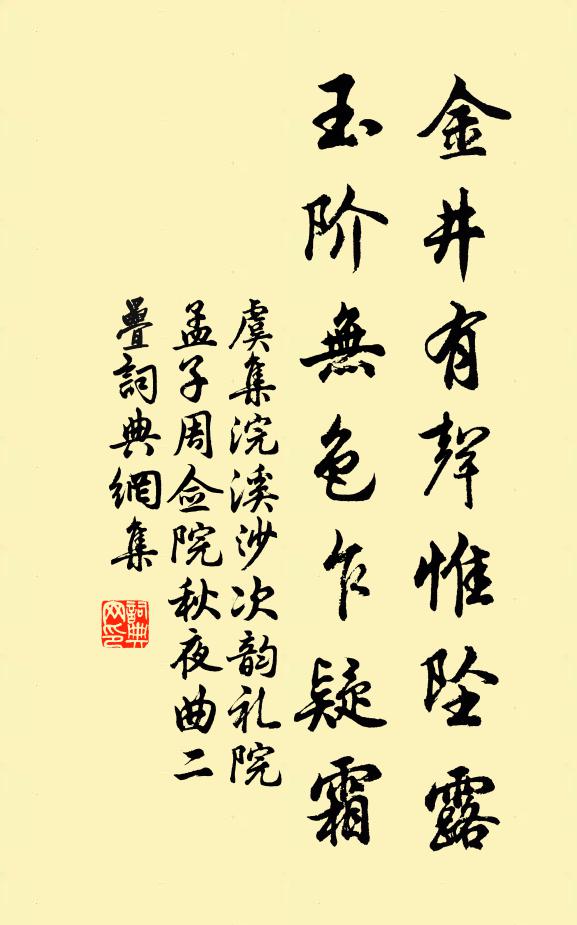 金井有聲惟坠露
玉阶無色乍疑霜
虞集浣溪沙次韵礼院
孟子周佥院秋夜曲二
疊詞典網集
詞典网印